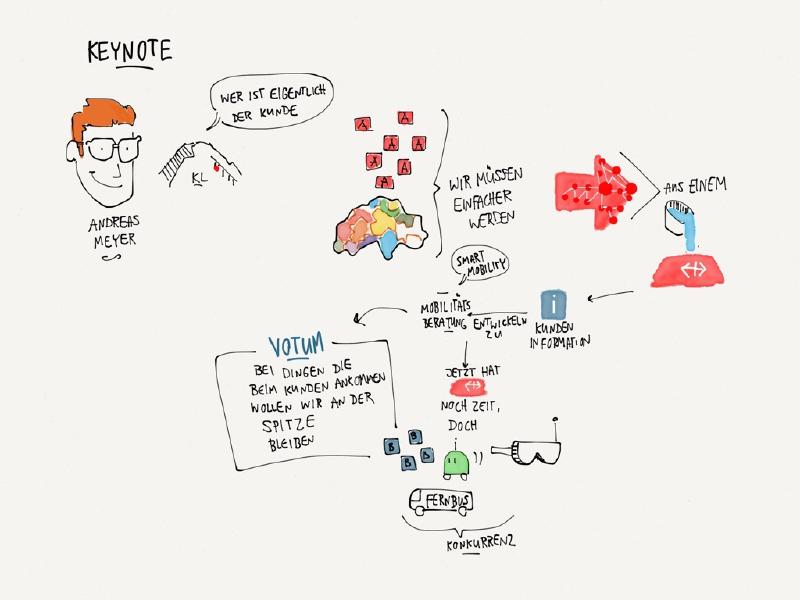 KEYNOTE
WER IST EIGENTLICH
DER KUNDE
KL
ANDREAS
MEYER
A
A
A
A
A
A
A
WIR MÜSSEN
EINFACHER
WERDEN
AUS EINEM
SMART
MOBILITY
i
KUNDEN
INFORMATION
ENTWICKELN
ZU
MOBILITÄTS
BERATUNG
VOTUM
BEI DINGEN DIE
BEIM KUNDEN ANKOMMEN
WOLLEN WIR AN DER
SPITZE
BLEIBEN
JETZT HAT
NOCH ZEIT,
DOCH
B
B
B
B
FERNBUS
KONKURRENZ